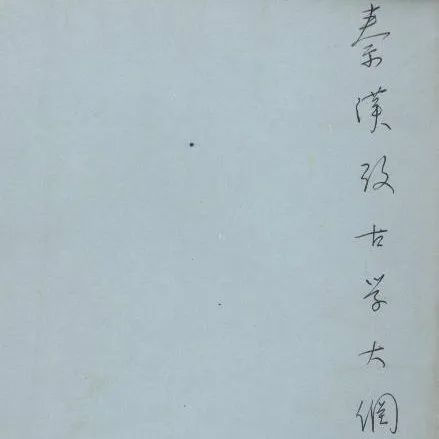 秦漢攷古学大綱